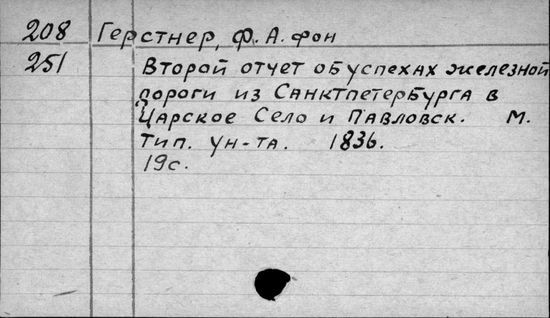 208 Герстнер, Ф. А. фон
251 Второй отчет об успехах железной
дороги из Санктпетербурга в
Царское Село и Павловск. М.
Тип. ун-та. 1836.
19с.